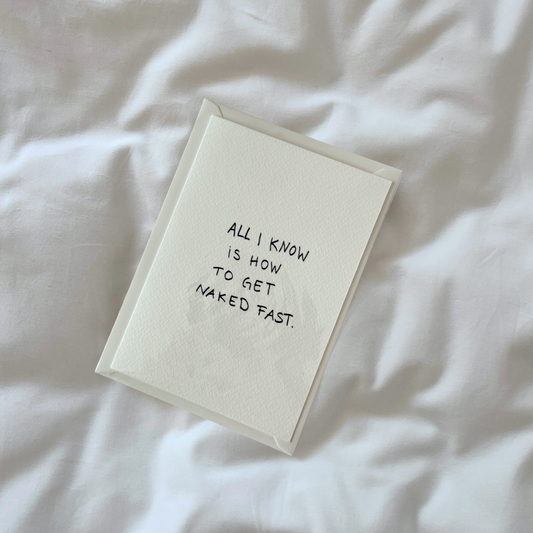 ALL I KNOW
IS HOW
TO GET
NAKED FAST.